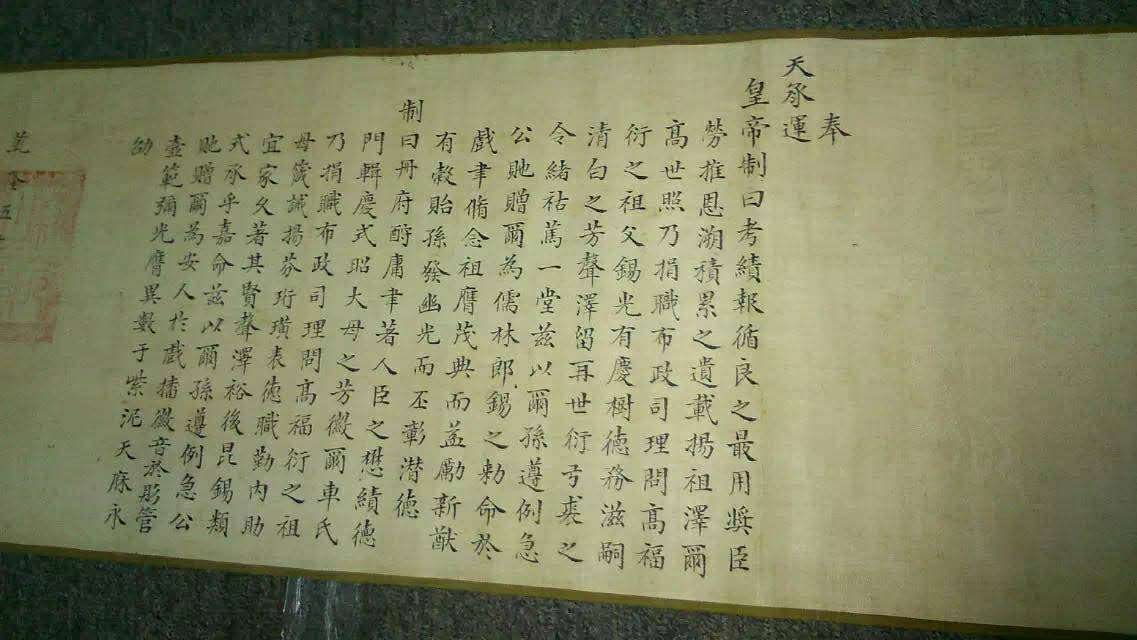 奉
天承運
皇帝制曰考績報循良之最用奬臣
勞推恩溯積累之遺載揚祖澤爾
髙世照乃捐職布政司理問髙福
衍之祖父錫光有慶樹德務滋嗣
清白之芳聲澤留再世衍弓裘之
令緒祜篤一堂茲以爾孫遵例急
公貤贈爾為儒林郎錫之勅命於
戲聿脩念祖膺茂典而益勵新猷
有穀貽孫發幽光而丕彰潛德
制曰冊府酧庸聿著人臣之懋績德
門輯慶式昭大母之芳徽爾車氏
乃捐職布政司理問髙福衍之祖
母箴誡揚芬珩璜表德職勤內助
宜家久著其賢聲澤裕後昆錫類
式承乎嘉命茲以爾孫遵例急公
貤贈爾為安人於戲播徽音於彤管
壼範彌光膺異數于紫泥天庥永
劭